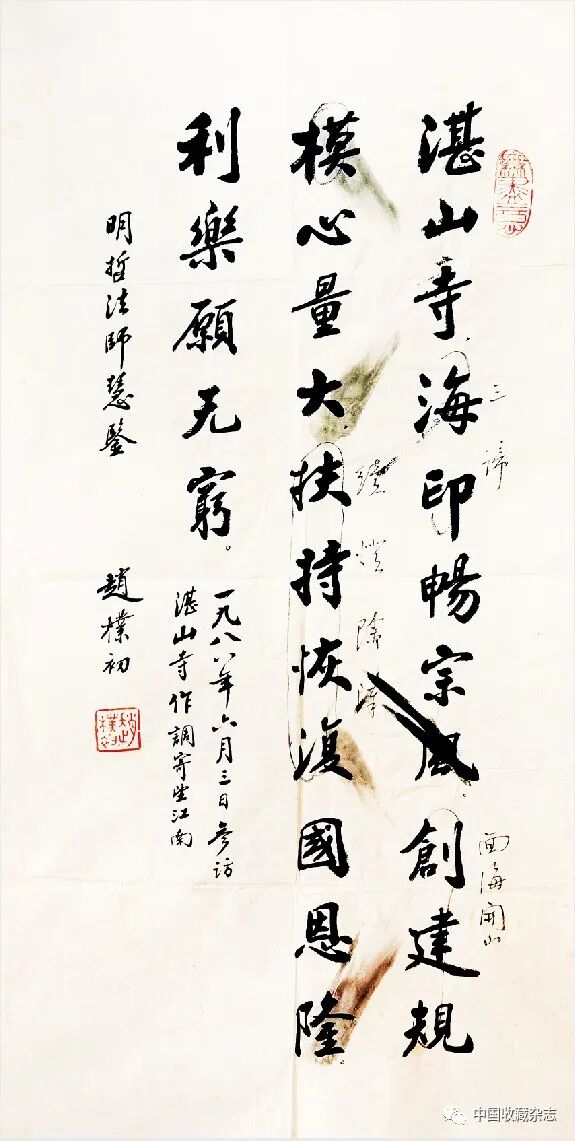 湛山寺海印暢宗風創建規
三諦
面海開山
模心量大扶持恢復國恩隆。
續燈除
利樂願无窮。
一九八八年六月三日參訪
湛山寺作調寄望江南
明哲法師慧鑒
趙樸初
趙樸初
中国收藏杂志